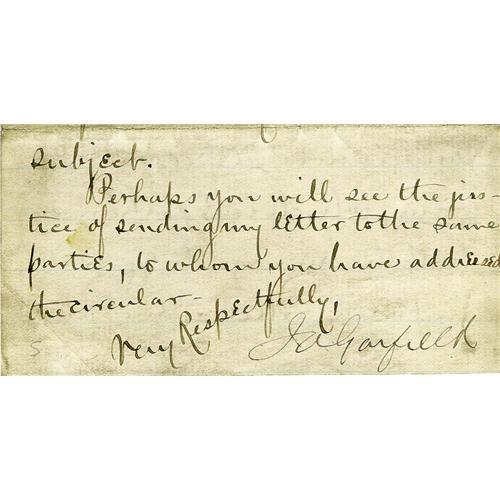 subject.
Perhaps you will see the jus-
tice of sending my letter to the same
parties, to whom you have addressed
the circular-
Very Respectfully,
JA Garfield
5